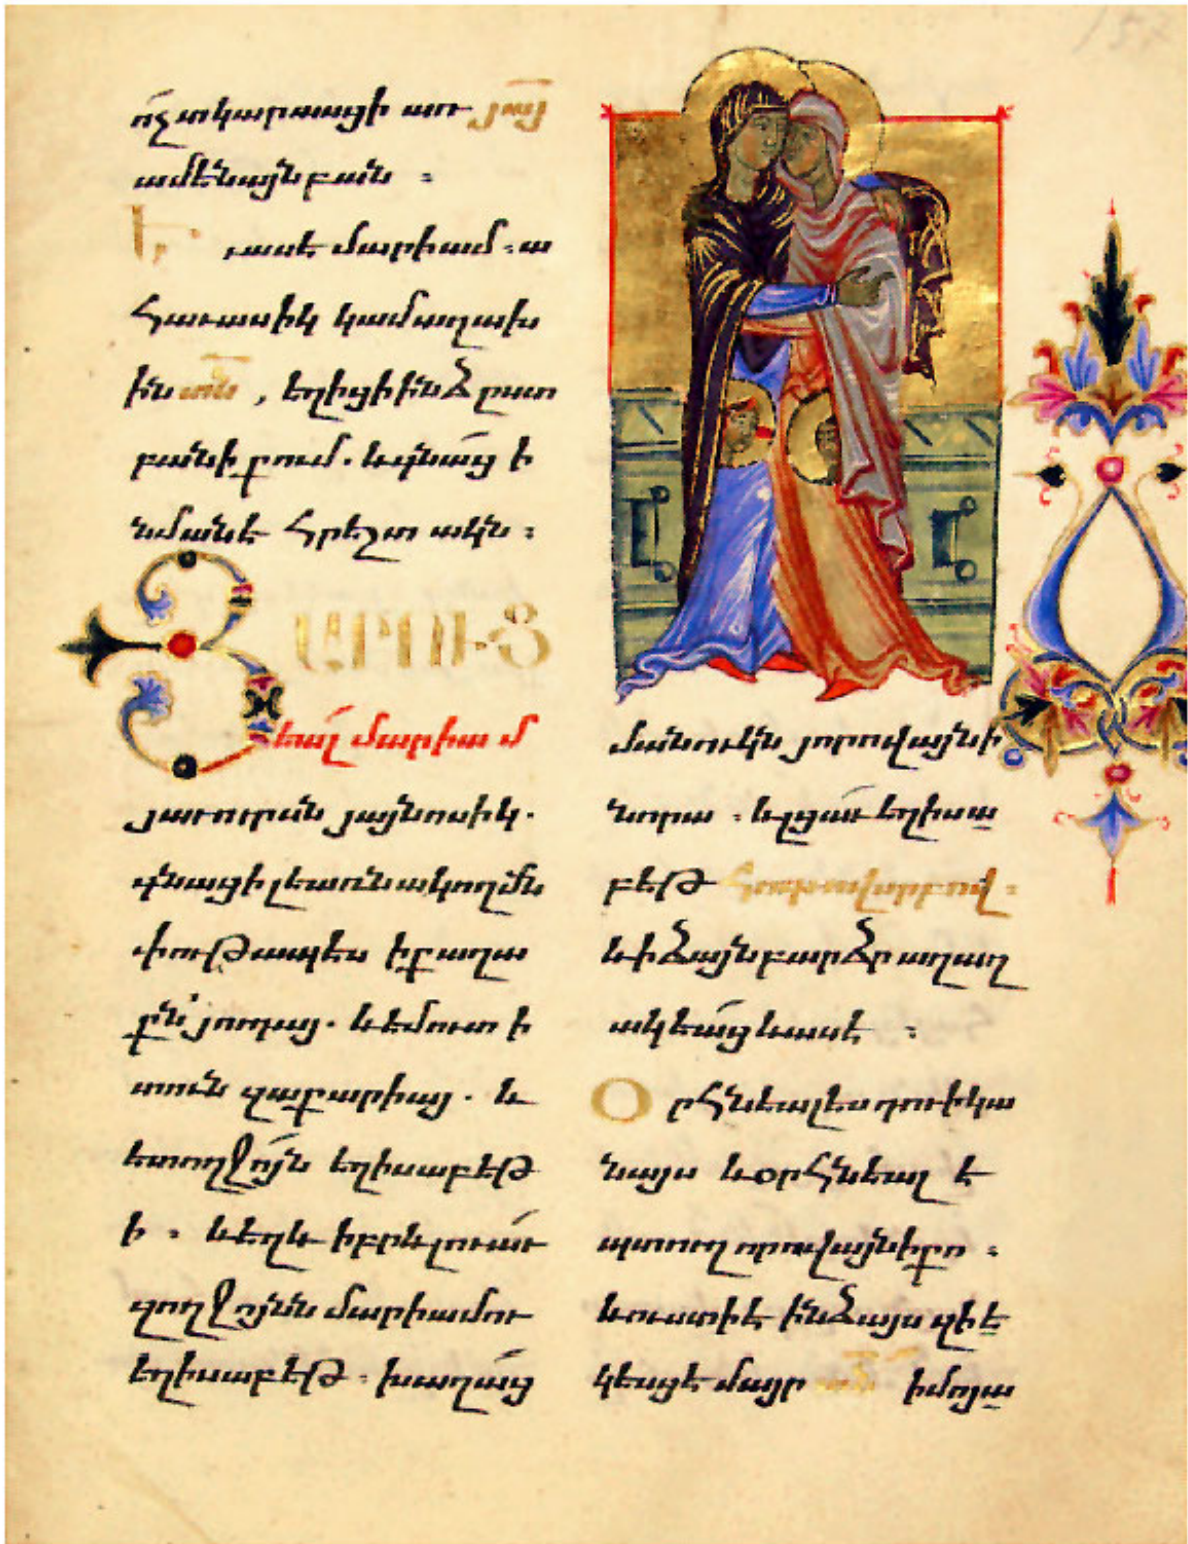 ո՛չ տկարասցի առ յայ
ամենայն բան ։
Եւ ասէ մարիամ ։ ա
հաւասիկ կամ աղախ
ին տն , եղիցի ինձ ըստ
բանի քում . և գնաց ի
նմանէ հրեշտակն ։
ՅԱՐՈՒՑ
եալ մարիամ
յաւուրսն յայնոսիկ .
գնաց ի լեառնակողմն
փութապէս ի քաղա
քն յուդայ . և եմուտ ի
տուն զաքարիայ . և
ետ ողջոյն եղիսաբեթ
ի ։ և եղև իբրև լուաւ
զողջոյնն մարիամու
եղիսաբեթ ։ խաղաց
մանուկն յորովայնի
նորա ։ և լցաւ եղիսա
բեթ հոգւովն սրբով ։
և ի ձայն բարձր աղաղ
ակեաց և ասէ ։
Օրհնեալ ես դու ի կա
նայս և օրհնեալ է
պտուղ որովայնի քո ։
և ուստի է ինձ այս զի ե
կեսցէ մայր տն իմոյ ա